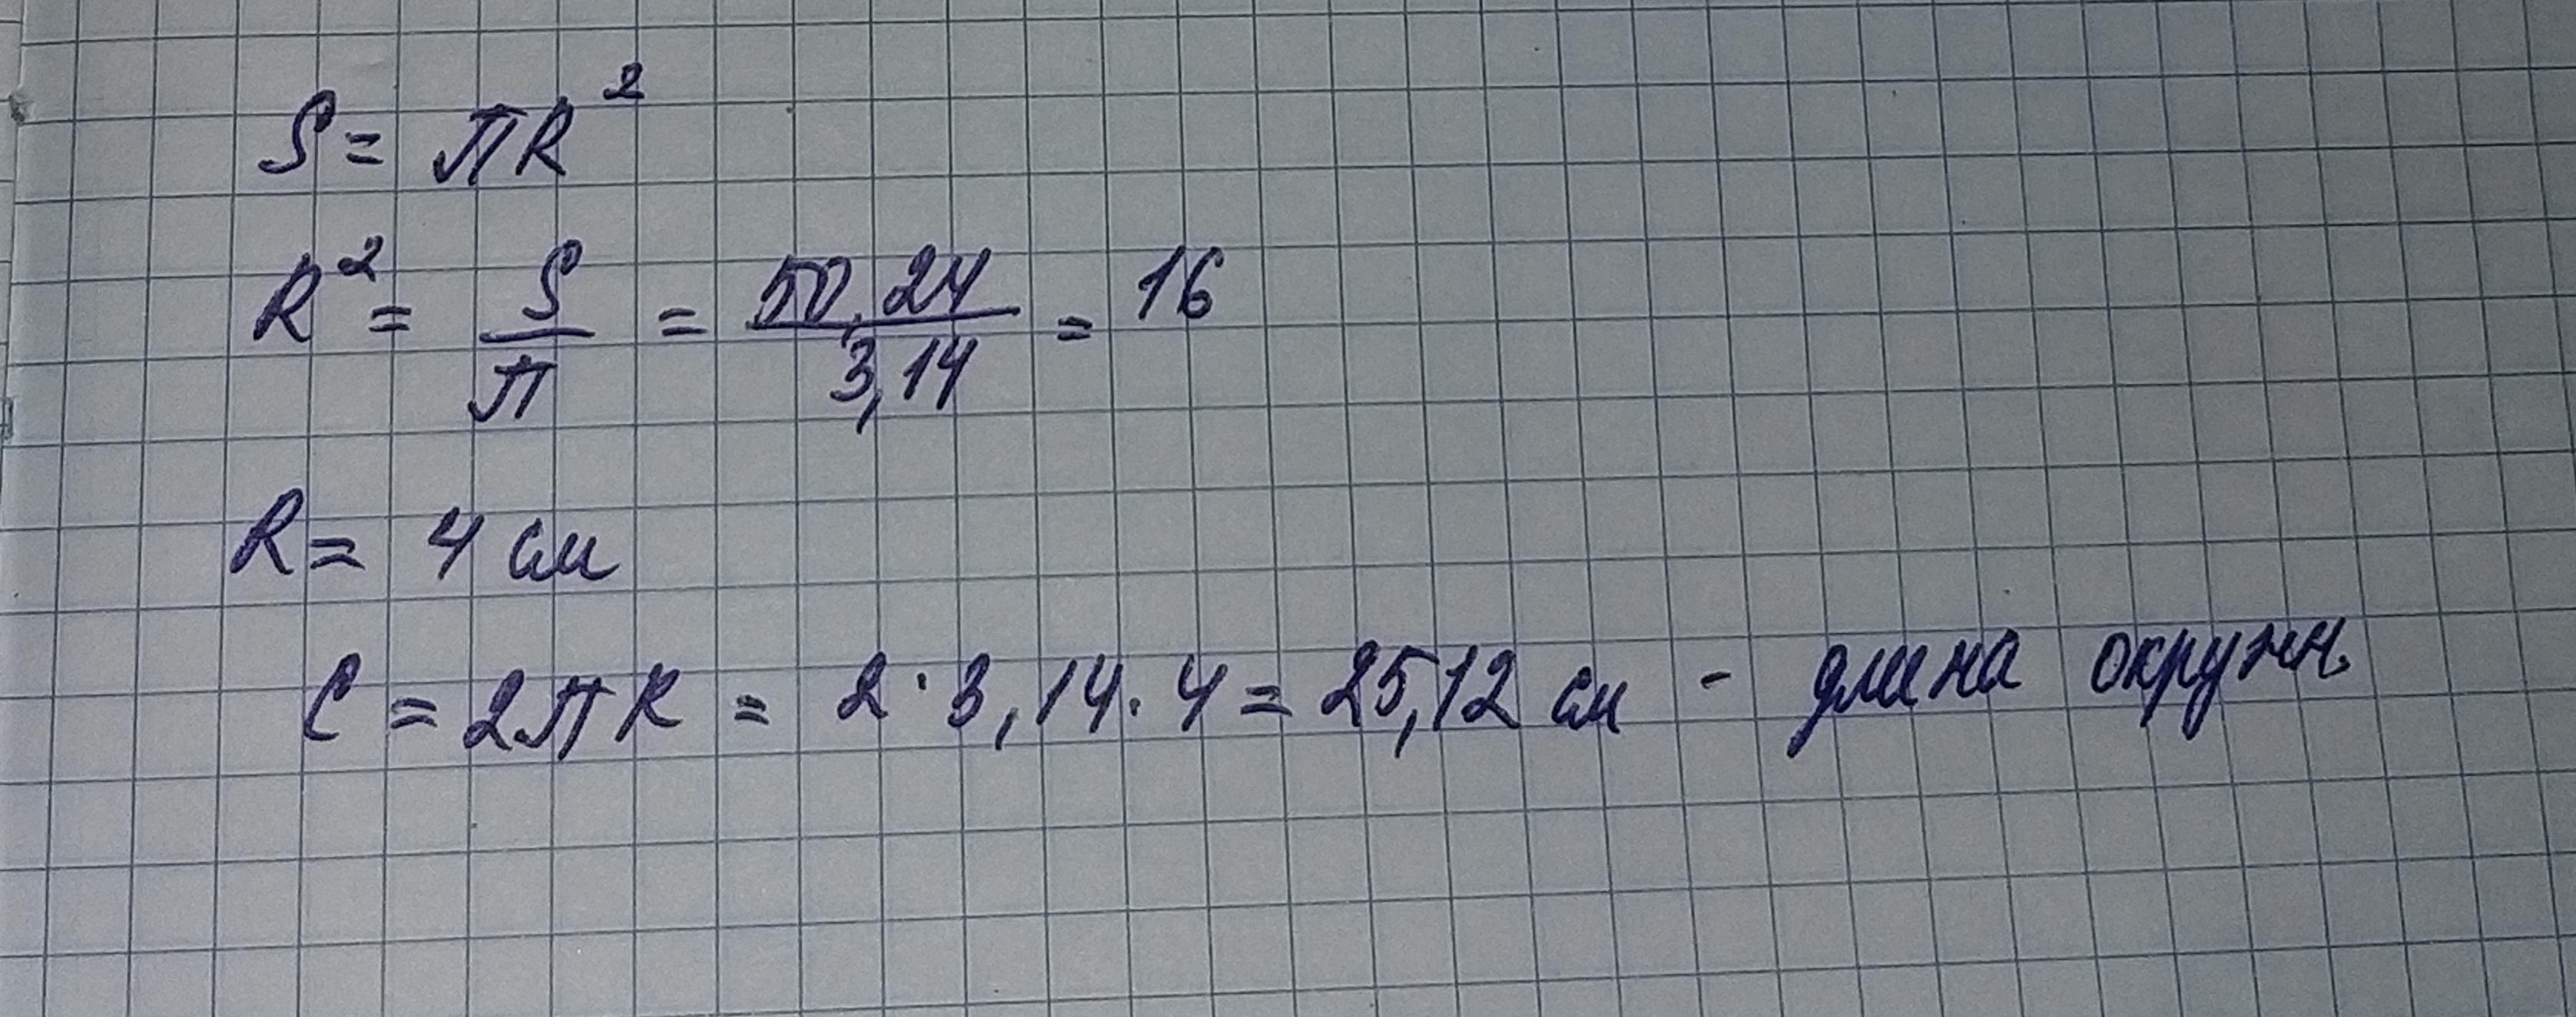 S = πR²
R² = S/π = 50,24/3,14 = 16
R = 4 см
C = 2πR = 2·3,14·4 = 25,12 см - длина окружн.